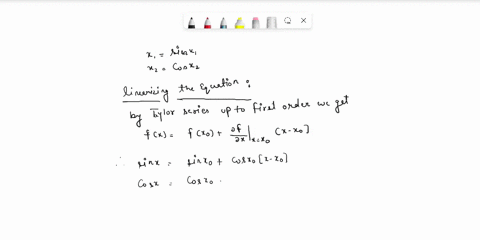 x₁ = sinx₁
x₂ = Cosx₂
Linearizing the Equation :
by Taylor series up to first order we get
f(x) = f(x₀) + ∂f/∂x|ₓ₌ₓ₀ (x-x₀]
∴ sinx = sinx₀ + cosx₀ [x-x₀]
Cosx = Cosx₀ .